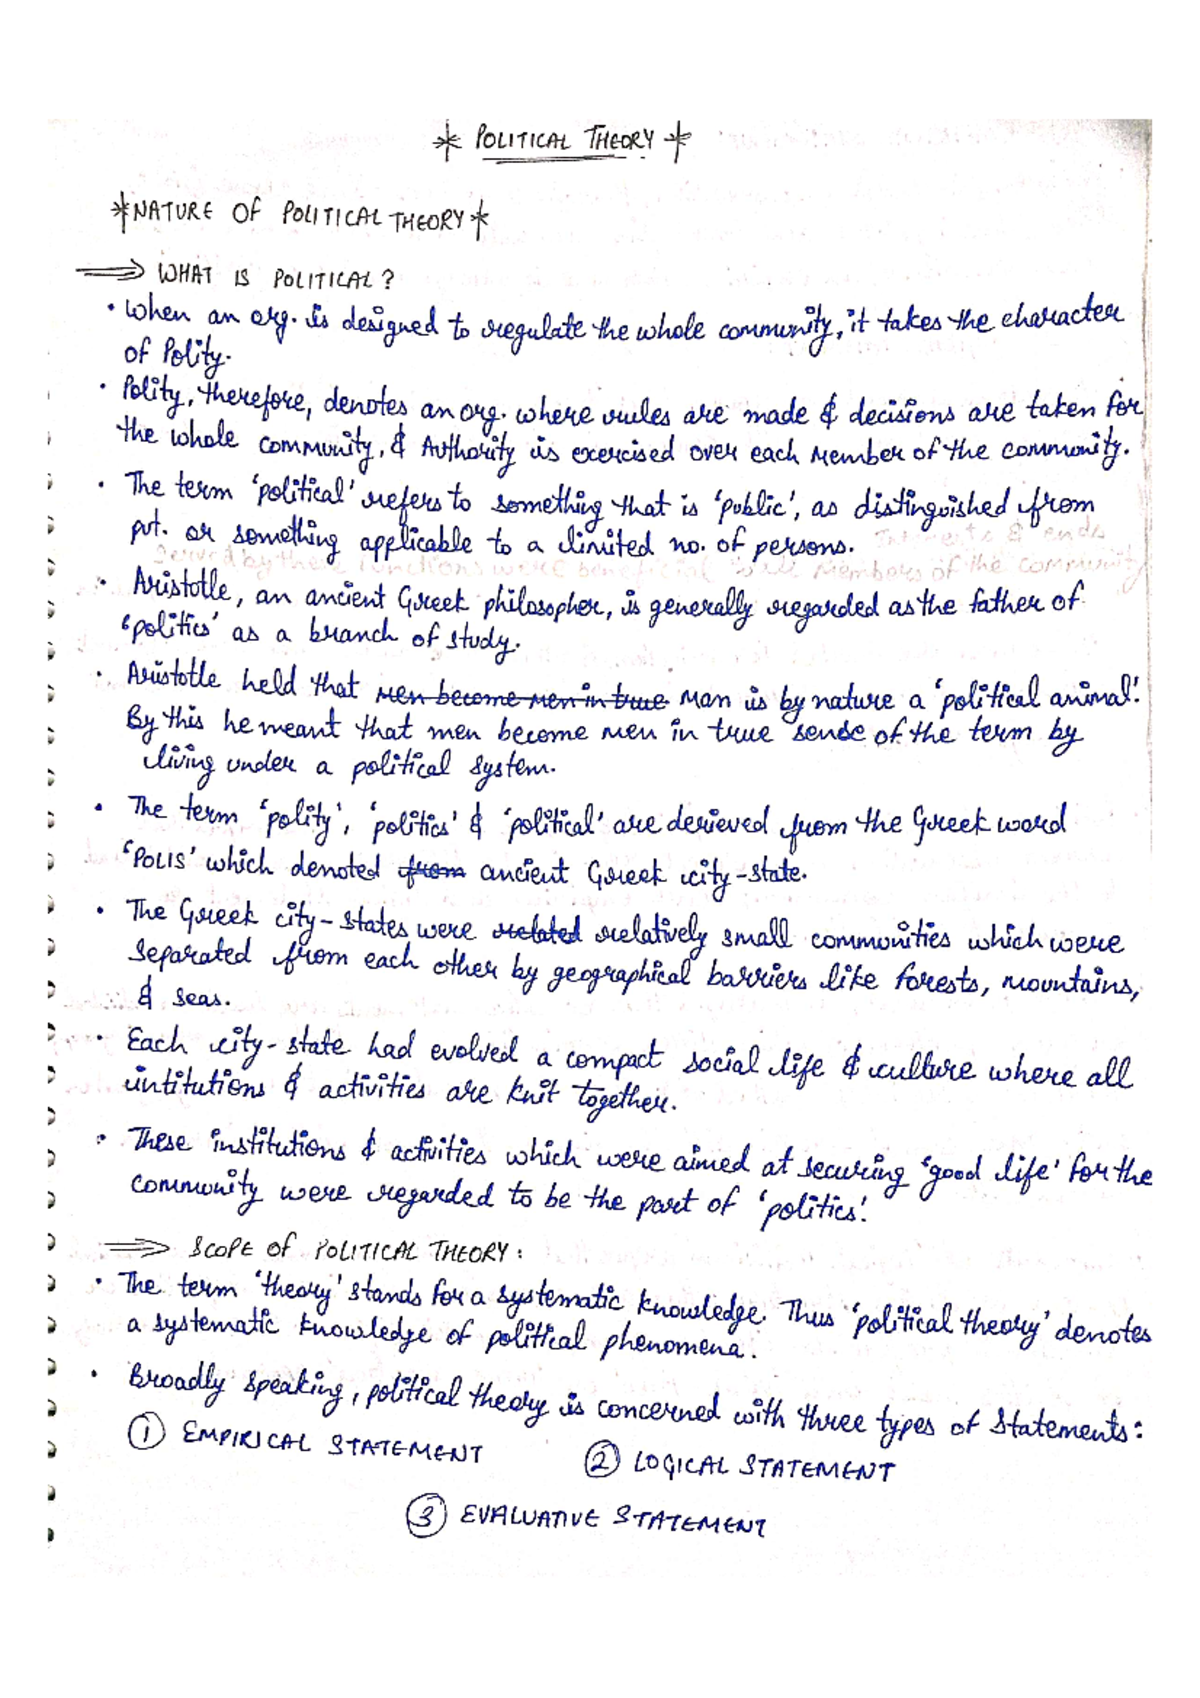 * POLITICAL THEORY *
*NATURE OF POLITICAL THEORY*
⟹ WHAT IS POLITICAL?
• When an org. is designed to regulate the whole community, it takes the character
of Polity.
• Polity, therefore, denotes an org. where rules are made & decisions are taken for
the whole community, & Authority is exercised over each Member of the community.
• The term 'political' refers to something that is 'public', as distinguished from
pvt. or something applicable to a limited no. of persons.
• Aristotle, an ancient Greek philosopher, is generally regarded as the father of
'politics' as a branch of study.
• Aristotle held that men become men in true Man is by nature a 'political animal'.
By this he meant that men become men in true sense of the term by
living under a political system.
• The term 'polity', 'politics' & 'political' are derieved from the Greek word
'POLIS' which denoted from ancient Greek city-state.
• The Greek city-states were related relatively small communities which were
separated from each other by geographical barriers like forests, mountains,
& seas.
• Each city-state had evolved a compact social life & culture where all
intitutions & activities are knit together.
• These institutions & activities which were aimed at securing 'good life' for the
community were regarded to be the part of 'politics'.
⟹ SCOPE OF POLITICAL THEORY:
• The term 'theory' stands for a systematic knowledge. Thus 'political theory' denotes
a systematic knowledge of political phenomena.
• Broadly speaking, political theory is concerned with three types of statements:
① EMPIRICAL STATEMENT
② LOGICAL STATEMENT
③ EVALUATIVE STATEMENT